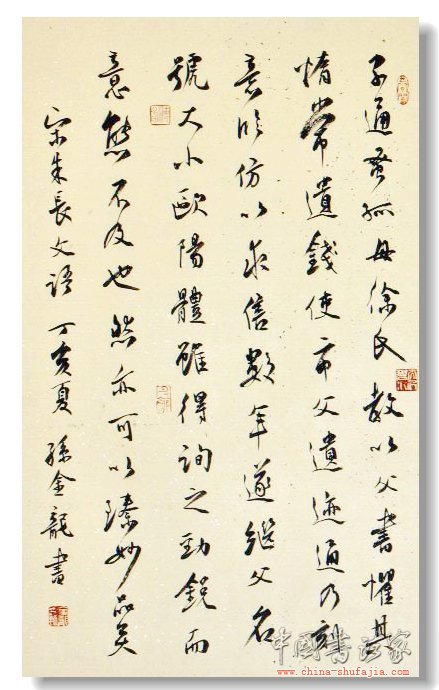 子通蚤孤母徐氏教以父書懼其
惰常遺錢使市父遺迹通乃刻
意臨仿以求售數年遂繼父名
號大小歐陽體雖得詢之勁銳而
意態不及也然亦可以臻妙品矣
宋朱長文語 丁亥夏 孫金龍書
中国书法家
www.china-shufajia.com